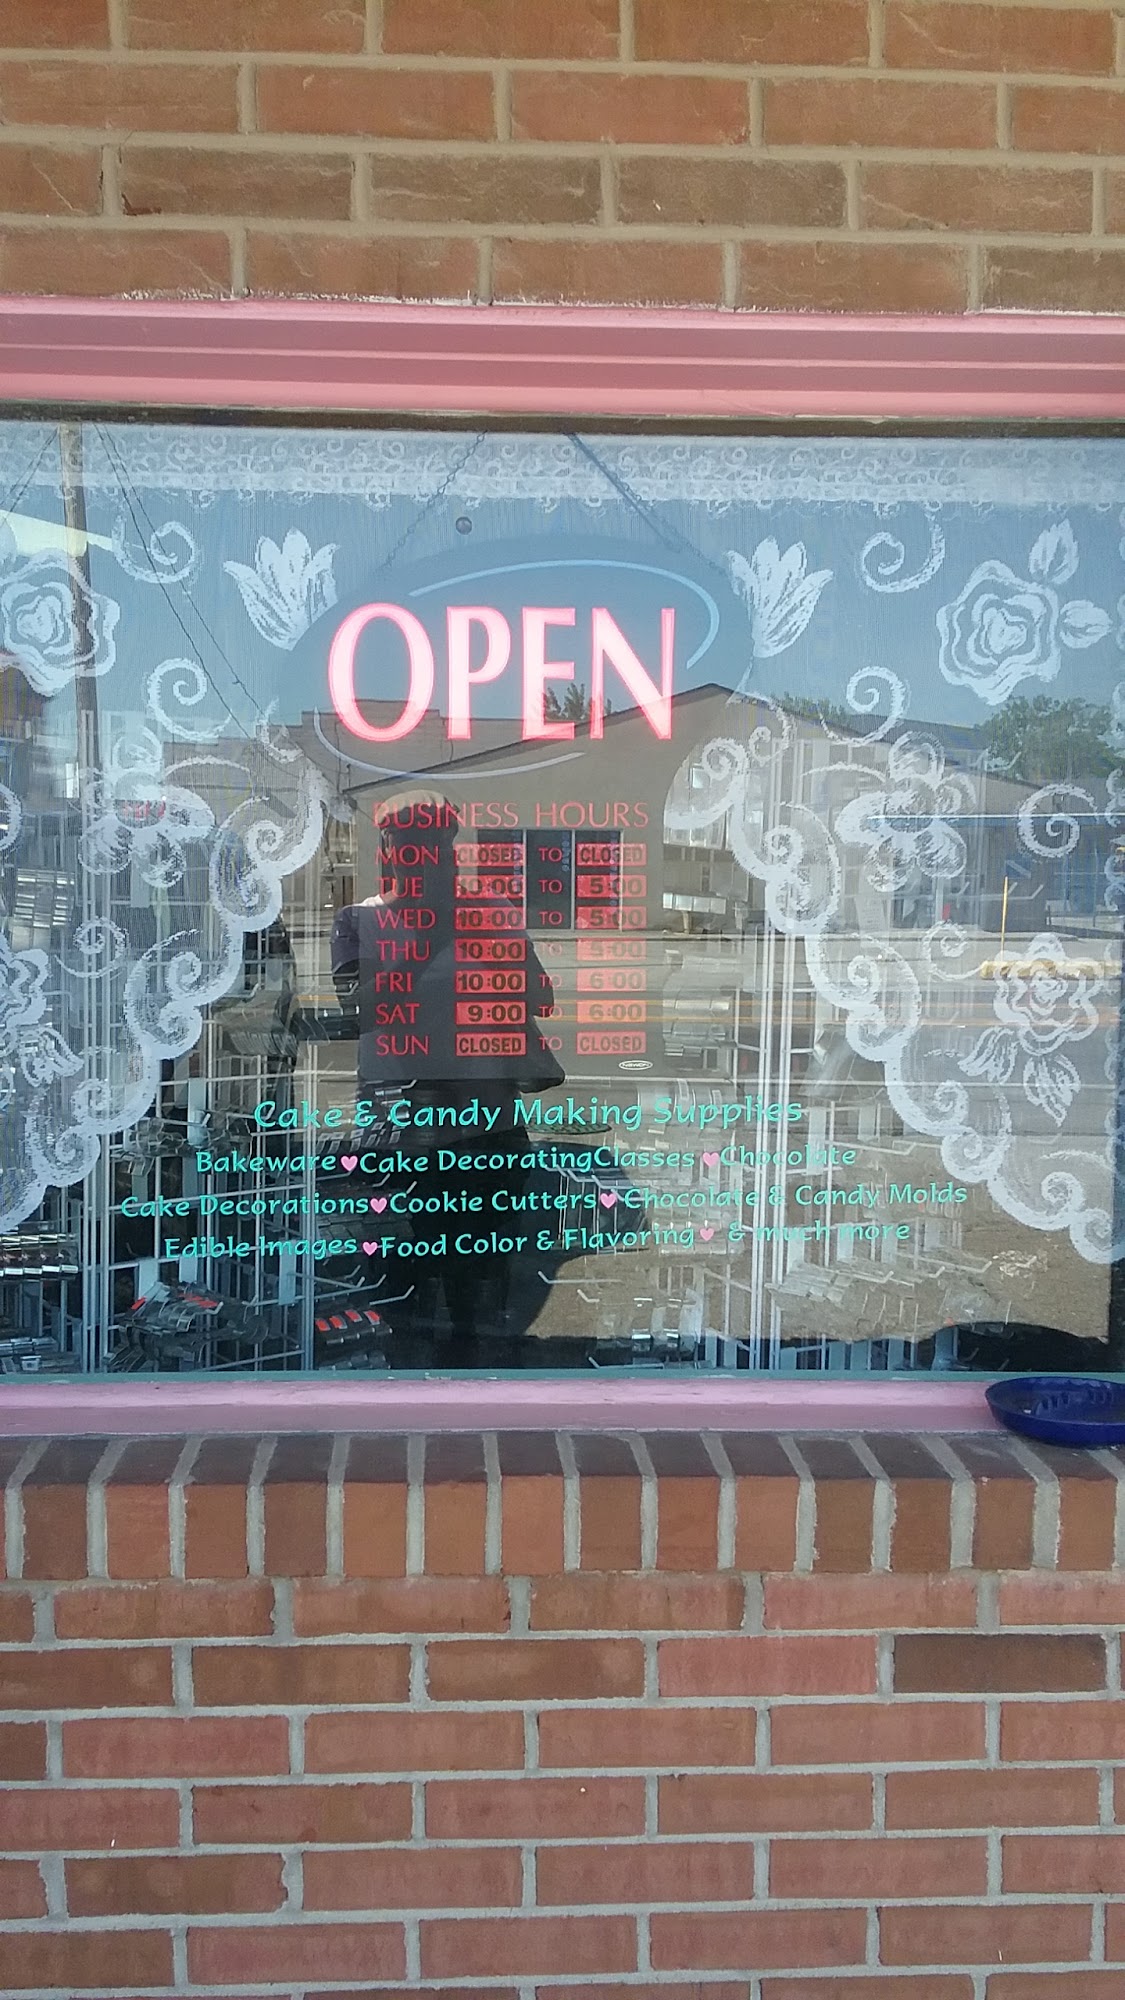 OPEN
BUSINESS HOURS
MON CLOSED TO CLOSED
TUE 10:00 TO 5:00
WED 10:00 TO 5:00
THU 10:00 TO 5:00
FRI 10:00 TO 6:00
SAT 9:00 TO 6:00
SUN CLOSED TO CLOSED
Cake & Candy Making Supplies
Bakeware♥Cake DecoratingClasses ♥Chocolate
Cake Decorations♥Cookie Cutters♥ Chocolate & Candy Molds
Edible Images ♥Food Color & Flavoring♥ & much more